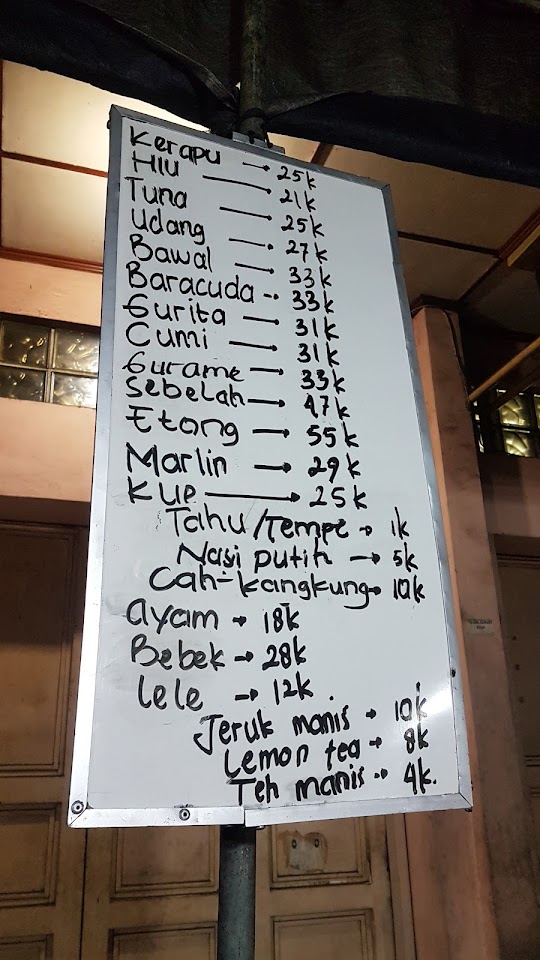 Kerapu → 25k
Hiu → 21k
Tuna → 25k
Udang → 27k
Bawal → 33k
Baracuda → 33k
Gurita → 31k
Cumi → 31k
Gurame → 33k
Sebelah → 47k
Etong → 55k
Marlin → 29k
Kue → 25k
Tahu/Tempe → 1k
Nasi putih → 5k
Cah-kangkung → 10k
Ayam → 18k
Bebek → 28k
Lele → 12k.
Jeruk manis → 10k
Lemon tea → 8k
Teh manis → 4k.